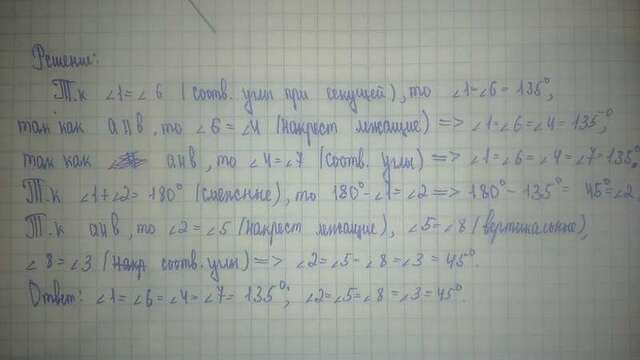 Решение:
Т.к ∠1=∠6 (соотв. углы при секущей), то ∠1=∠6=135°,
так как a п в, то ∠6=∠4 (накрест лежащие) => ∠1=∠6=∠4=135°,
так как a н в, то ∠4=∠7 (соотв. углы) => ∠1=∠6=∠4=∠7=135°.
Т.к ∠1+∠2=180° (смежные), то 180°-∠1=∠2 => 180°-135°=45°=∠2.
Т.к a н в, то ∠2=∠5 (накрест лежащие), ∠5=∠8 (вертикальные),
∠8=∠3 (соотв. углы) => ∠2=∠5=∠8=∠3=45°.
Ответ: ∠1=∠6=∠4=∠7=135°; ∠2=∠5=∠8=∠3=45°.